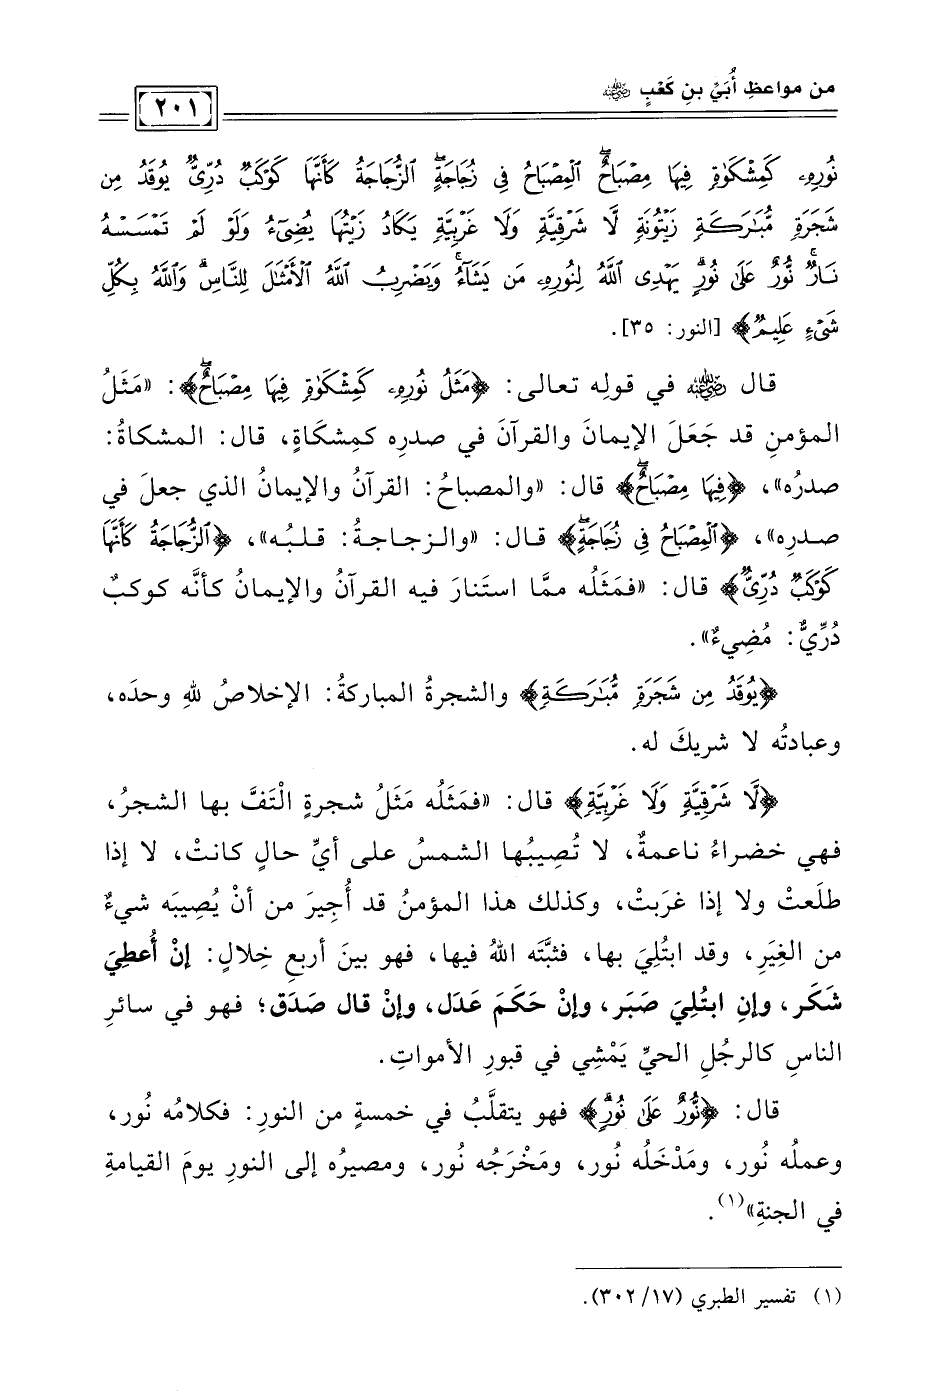 من مواعظِ أُبَيِّ بنِ كَعْبٍ ﵁
٢٠١
نُورِهِۦ كَمِشْكَوٰةٍ فِيهَا مِصْبَاحٌ ۖ ٱلْمِصْبَاحُ فِى زُجَاجَةٍ ۖ ٱلزُّجَاجَةُ كَأَنَّهَا كَوْكَبٌ دُرِّىٌّ يُوقَدُ مِن
شَجَرَةٍ مُّبَٰرَكَةٍ زَيْتُونَةٍ لَّا شَرْقِيَّةٍ وَلَا غَرْبِيَّةٍ يَكَادُ زَيْتُهَا يُضِىٓءُ وَلَوْ لَمْ تَمْسَسْهُ
نَارٌ ۚ نُّورٌ عَلَىٰ نُورٍ ۗ يَهْدِى ٱللَّهُ لِنُورِهِۦ مَن يَشَآءُ ۚ وَيَضْرِبُ ٱللَّهُ ٱلْأَمْثَٰلَ لِلنَّاسِ ۗ وَٱللَّهُ بِكُلِّ
شَىْءٍ عَلِيمٌ﴾ [النور: ٣٥].
قال ﵁ في قولِه تعالى: ﴿مَثَلُ نُورِهِۦ كَمِشْكَوٰةٍ فِيهَا مِصْبَاحٌ ۖ﴾: «مَثَلُ
المؤمنِ قد جَعَلَ الإيمانَ والقرآنَ في صدرِه كمِشكَاةٍ، قال: المشكاةُ:
صدرُه»، ﴿فِيهَا مِصْبَاحٌ ۖ﴾ قال: «والمصباحُ: القرآنُ والإيمانُ الذي جعلَ في
صدرِه»، ﴿ٱلْمِصْبَاحُ فِى زُجَاجَةٍ ۖ﴾ قال: «والزجاجةُ: قلبُه»، ﴿ٱلزُّجَاجَةُ كَأَنَّهَا
كَوْكَبٌ دُرِّىٌّ﴾ قال: «فمَثَلُه ممَّا استَنارَ فيه القرآنُ والإيمانُ كأنَّه كوكبٌ
دُرِّيٌّ: مُضِيءٌ».
﴿يُوقَدُ مِن شَجَرَةٍ مُّبَٰرَكَةٍ﴾ والشجرةُ المباركةُ: الإخلاصُ للهِ وحدَه،
وعبادتُه لا شريكَ له.
﴿لَّا شَرْقِيَّةٍ وَلَا غَرْبِيَّةٍ﴾ قال: «فمَثَلُه مَثَلُ شجرةٍ الْتَفَّ بها الشجرُ،
فهي خضراءُ ناعمةٌ، لا تُصِيبُها الشمسُ على أيِّ حالٍ كانتْ، لا إذا
طلَعتْ ولا إذا غرَبتْ، وكذلك هذا المؤمنُ قد أُجِيرَ من أنْ يُصِيبَه شيءٌ
من الغِيَرِ، وقد ابتُلِيَ بها، فثبَّتَه اللهُ فيها، فهو بينَ أربعِ خِلالٍ: إنْ أُعطِيَ
شكَر، وإنِ ابتُلِيَ صبَر، وإنْ حَكَمَ عَدَل، وإنْ قال صَدَق؛ فهو في سائرِ
الناسِ كالرجُلِ الحيِّ يَمْشِي في قبورِ الأمواتِ.
قال: ﴿نُّورٌ عَلَىٰ نُورٍ ۗ﴾ فهو يتقلَّبُ في خمسةٍ من النورِ: فكلامُه نُور،
وعملُه نُور، ومَدْخَلُه نُور، ومَخْرَجُه نُور، ومصيرُه إلى النورِ يومَ القيامةِ
في الجنةِ»(١).
(١) تفسير الطبري (١٧/ ٣٠٢).